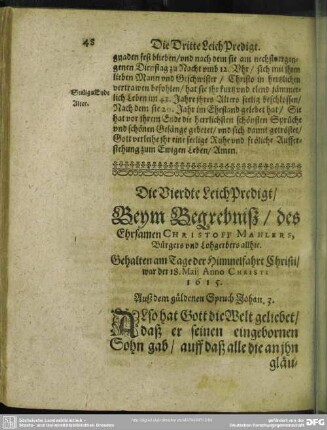 48
Die Dritte LeichPredigt.
gnaden fest blieben / vnd nach dem sie am nechstvergan-
genen Dienstag zu Nacht vmb 12. Vhr / sich mit ihrem
lieben Mann vnd Geschwister / Christo in hertzlichen
vertrawen befohlen / hat sie ihr kurtz vnd elend jämmer-
Seeligs Ende
lich Leben im 42. Jahre ihres Alters seelig beschlossen /
Alter.
Nach dem sie 20. Jahr im Ehestand gelebet hat / Sie
hat vor ihrem Ende die herrlichsten schönsten Sprüche
vnd schönen Gesänge gebetet / vnd sich damit getröstet /
Gott verleihe ihr eine seelige Ruhe vnd fröliche Auffer-
stehung zum Ewigen Leben / Amen.
Die Vierdte LeichPredigt /
Beym Begrebniß / des
Ehrsamen CHRISTOFF MAHLERS,
Bürgers vnd Lohgerbers allhie.
Gehalten am Tage der Himmelfahrt Christi /
war der 18. Maij Anno CHRISTI
1615.
Auß dem güldenen Spruch Johan. 3.
ALso hat Gott die Welt geliebet /
daß er seinen eingebornen
Sohn gab / auff daß alle die an jhn
gläu-